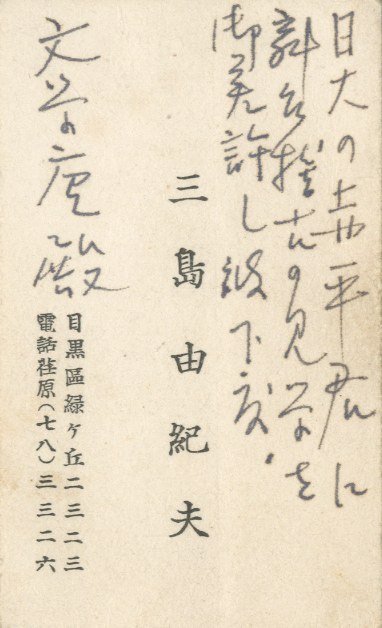 日大の平君に
舞台稽古の見学を
御許し被下度、
三島由紀夫
文学座
目黒區緑ヶ丘二三二三
電話荏原(七八)三三二六